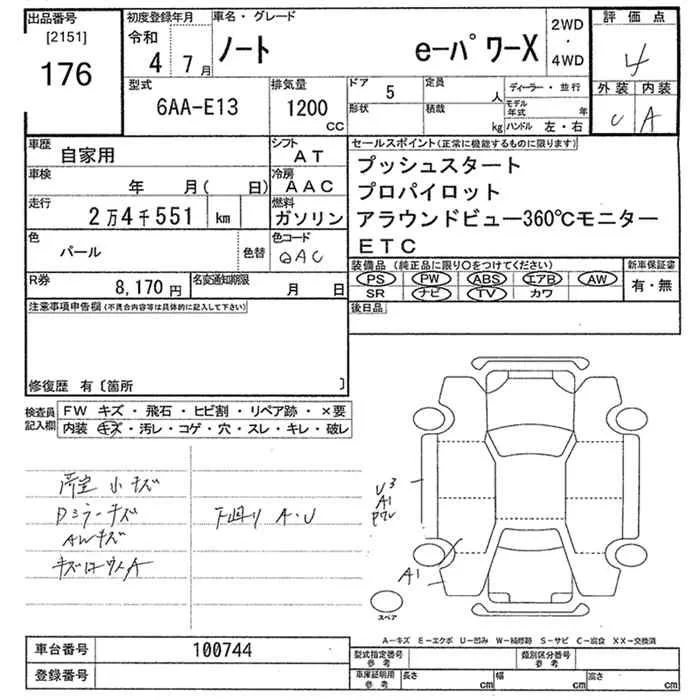 出品番号
[2151]
176
初度登録年月
令和
4 7月
車名・グレード
ノート e-パワーX
2WD
・
4WD
評価点
4
外装 内装
A
型式
6AA-E13
排気量
1200
CC
ドア 5
形状
定員 人
積載 kg
ディーラー・並行
モデル年式 年
ハンドル 左・右
車歴
自家用
シフト
AT
車検
年 月( 日)
冷房
AAC
走行
2万4千551 km
燃料
ガソリン
色
パール
色替
色コード
QAC
R券
8,170円
名変通知期限
月 日
セールスポイント(正常に機能するものに限ります)
プッシュスタート
プロパイロット
アラウンドビュー360℃モニター
ETC
装備品 (純正品に限り〇をつけてください)
PS PW ABS エアB AW
SR ナビ TV カワ
新車保証書
有・無
後日品
注意事項申告欄(不具合内容等は具体的に記入して下さい)
修復歴 有〔箇所 〕
検査員
記入欄
FW キズ・飛石・ヒビ割・リペア跡・×要
内装 キズ・汚レ・コゲ・穴・スレ・キレ・破レ
小キズ
Dミラーキズ
AWキズ
下回り A・U
U3
A1
A1
スペア
A-キズ E-エクボ U-凹み W-補修跡 S-サビ C-腐食 XX-交換済
車台番号
100744
登録番号
型式指定番号
参考
類別区分番号
参考
車庫証明用
参考
長さ cm
幅 cm
高さ cm